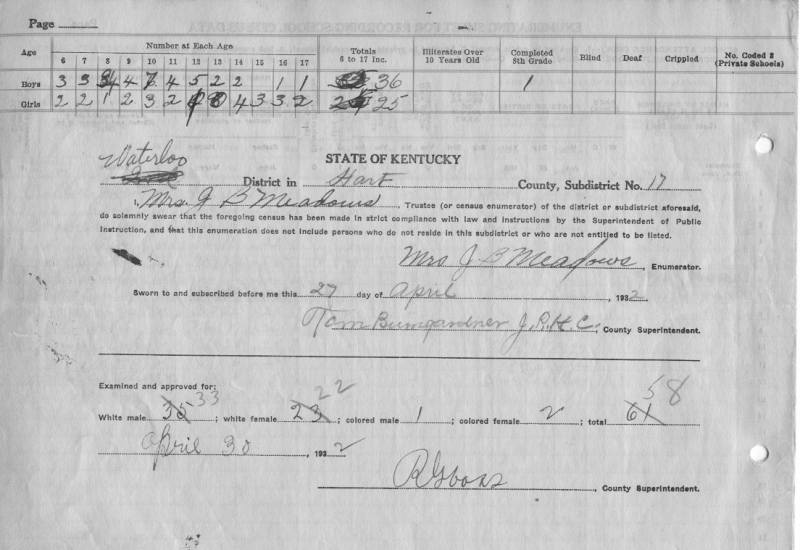 Page
Age Number at Each Age Totals 6 to 17 Inc. Illiterates Over 10 Years Old Completed 8th Grade Blind Deaf Crippled No. Coded 2 (Private Schools)
6 7 8 9 10 11 12 13 14 15 16 17
Boys 3 3 4 4 7 4 5 2 2 1 1 36 1
Girls 2 2 1 2 3 2 4 3 3 2 25
STATE OF KENTUCKY
Waterloo District in Hart County, Subdistrict No. 17
I, Mrs. J B Meadows, Trustee (or census enumerator) of the district or subdistrict aforesaid,
do solemnly swear that the foregoing census has been made in strict compliance with law and instructions by the Superintendent of Public
Instruction, and that this enumeration does not include persons who do not reside in this subdistrict or who are not entitled to be listed.
Mrs J. B Meadows, Enumerator.
Sworn to and subscribed before me this 27 day of April, 1932.
Tom Bumgardner J.P.H.C., County Superintendent.
Examined and approved for:
White male 35 33; white female 23 22; colored male 1; colored female 2; total 61 58
April 30, 1932
County Superintendent.